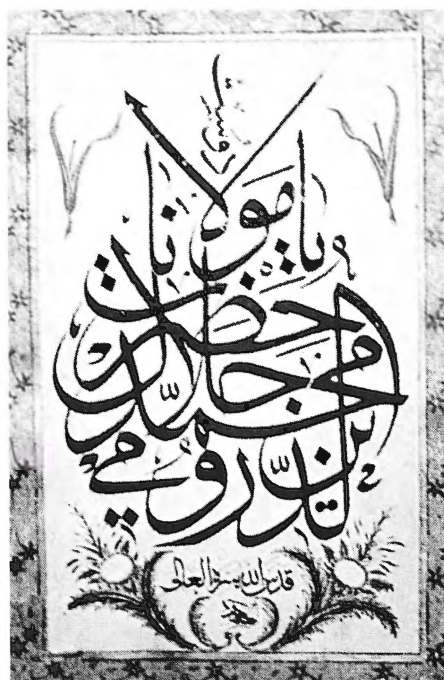 يا حضرت مولانا
محمد جلال الدين رومي
قدس الله سره العالى